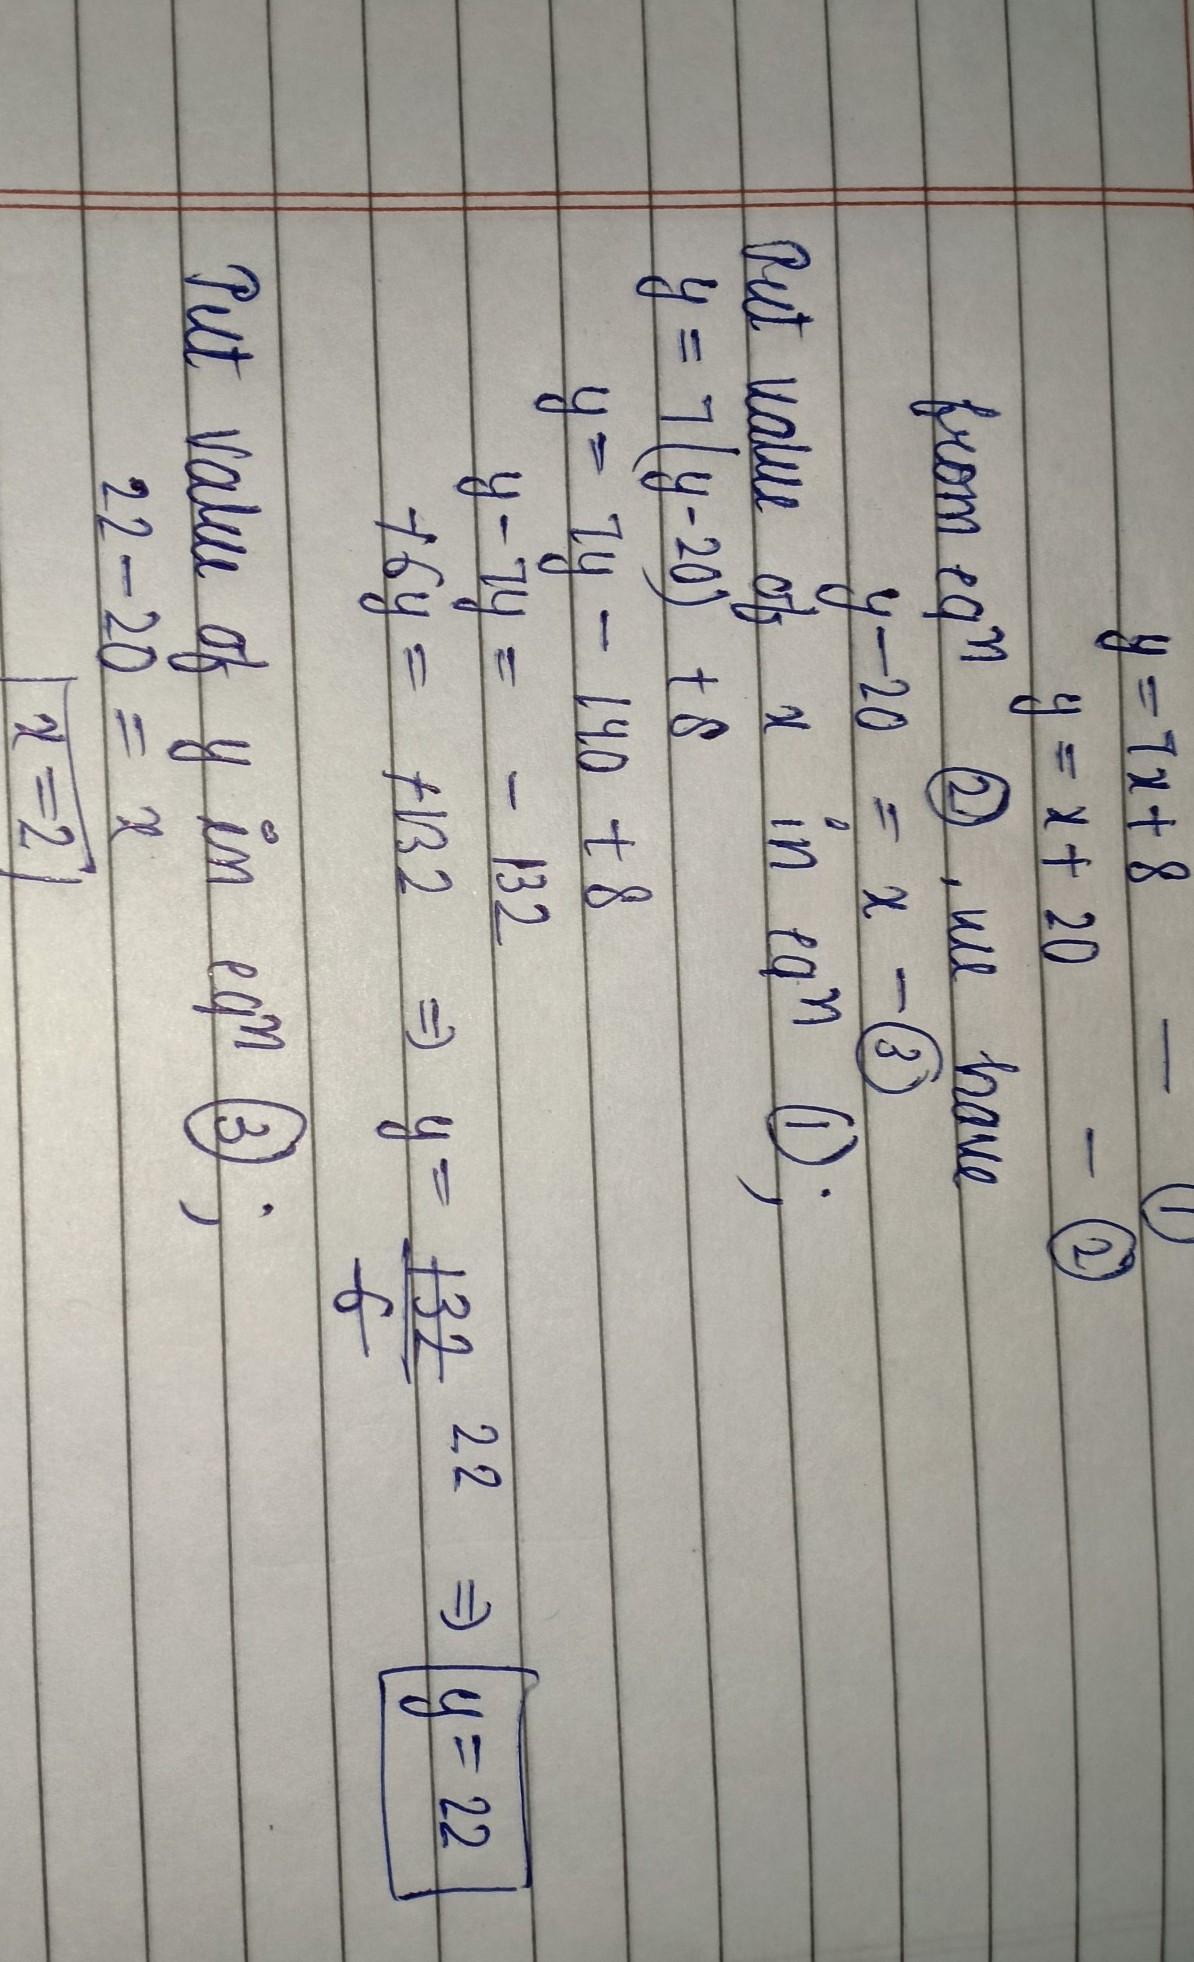 y = 7x + 8 — ①
y = x + 20 - ②
from eqⁿ ②, we have
y - 20 = x - ③
Put value of x in eqⁿ ①;
y = 7(y-20) + 8
y = 7y - 140 + 8
y - 7y = - 132
+6y = +132 ⇒ y = 132/6 22 ⇒ y = 22
Put value of y in eqⁿ ③;
22 - 20 = x
x = 2